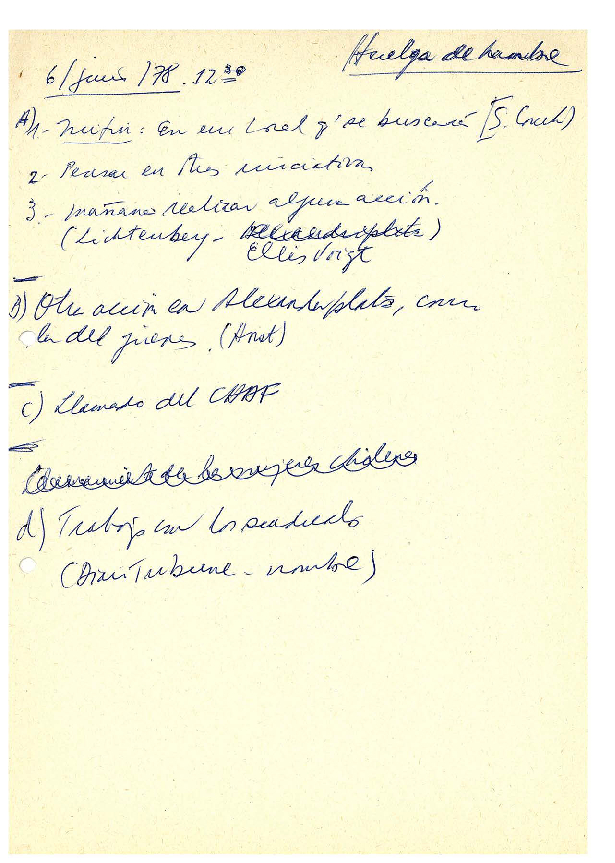 Huelga de hambre
6/junio/78. 12³⁰
A)
1.- : En un local q' se buscará [S.
2.- Pensar en otras iniciativas
3.- mañana realizar alguna acción.
(Lichtenberg - Alexanderplatz)
Ellis Voigt
B) Otra acción en Alexanderplatz, como
la del jueves. (Anot)
C) Llamado del CHAF
Llamamiento de las mujeres chilenas
d) Trabajo con los
(Tribune - nombre)